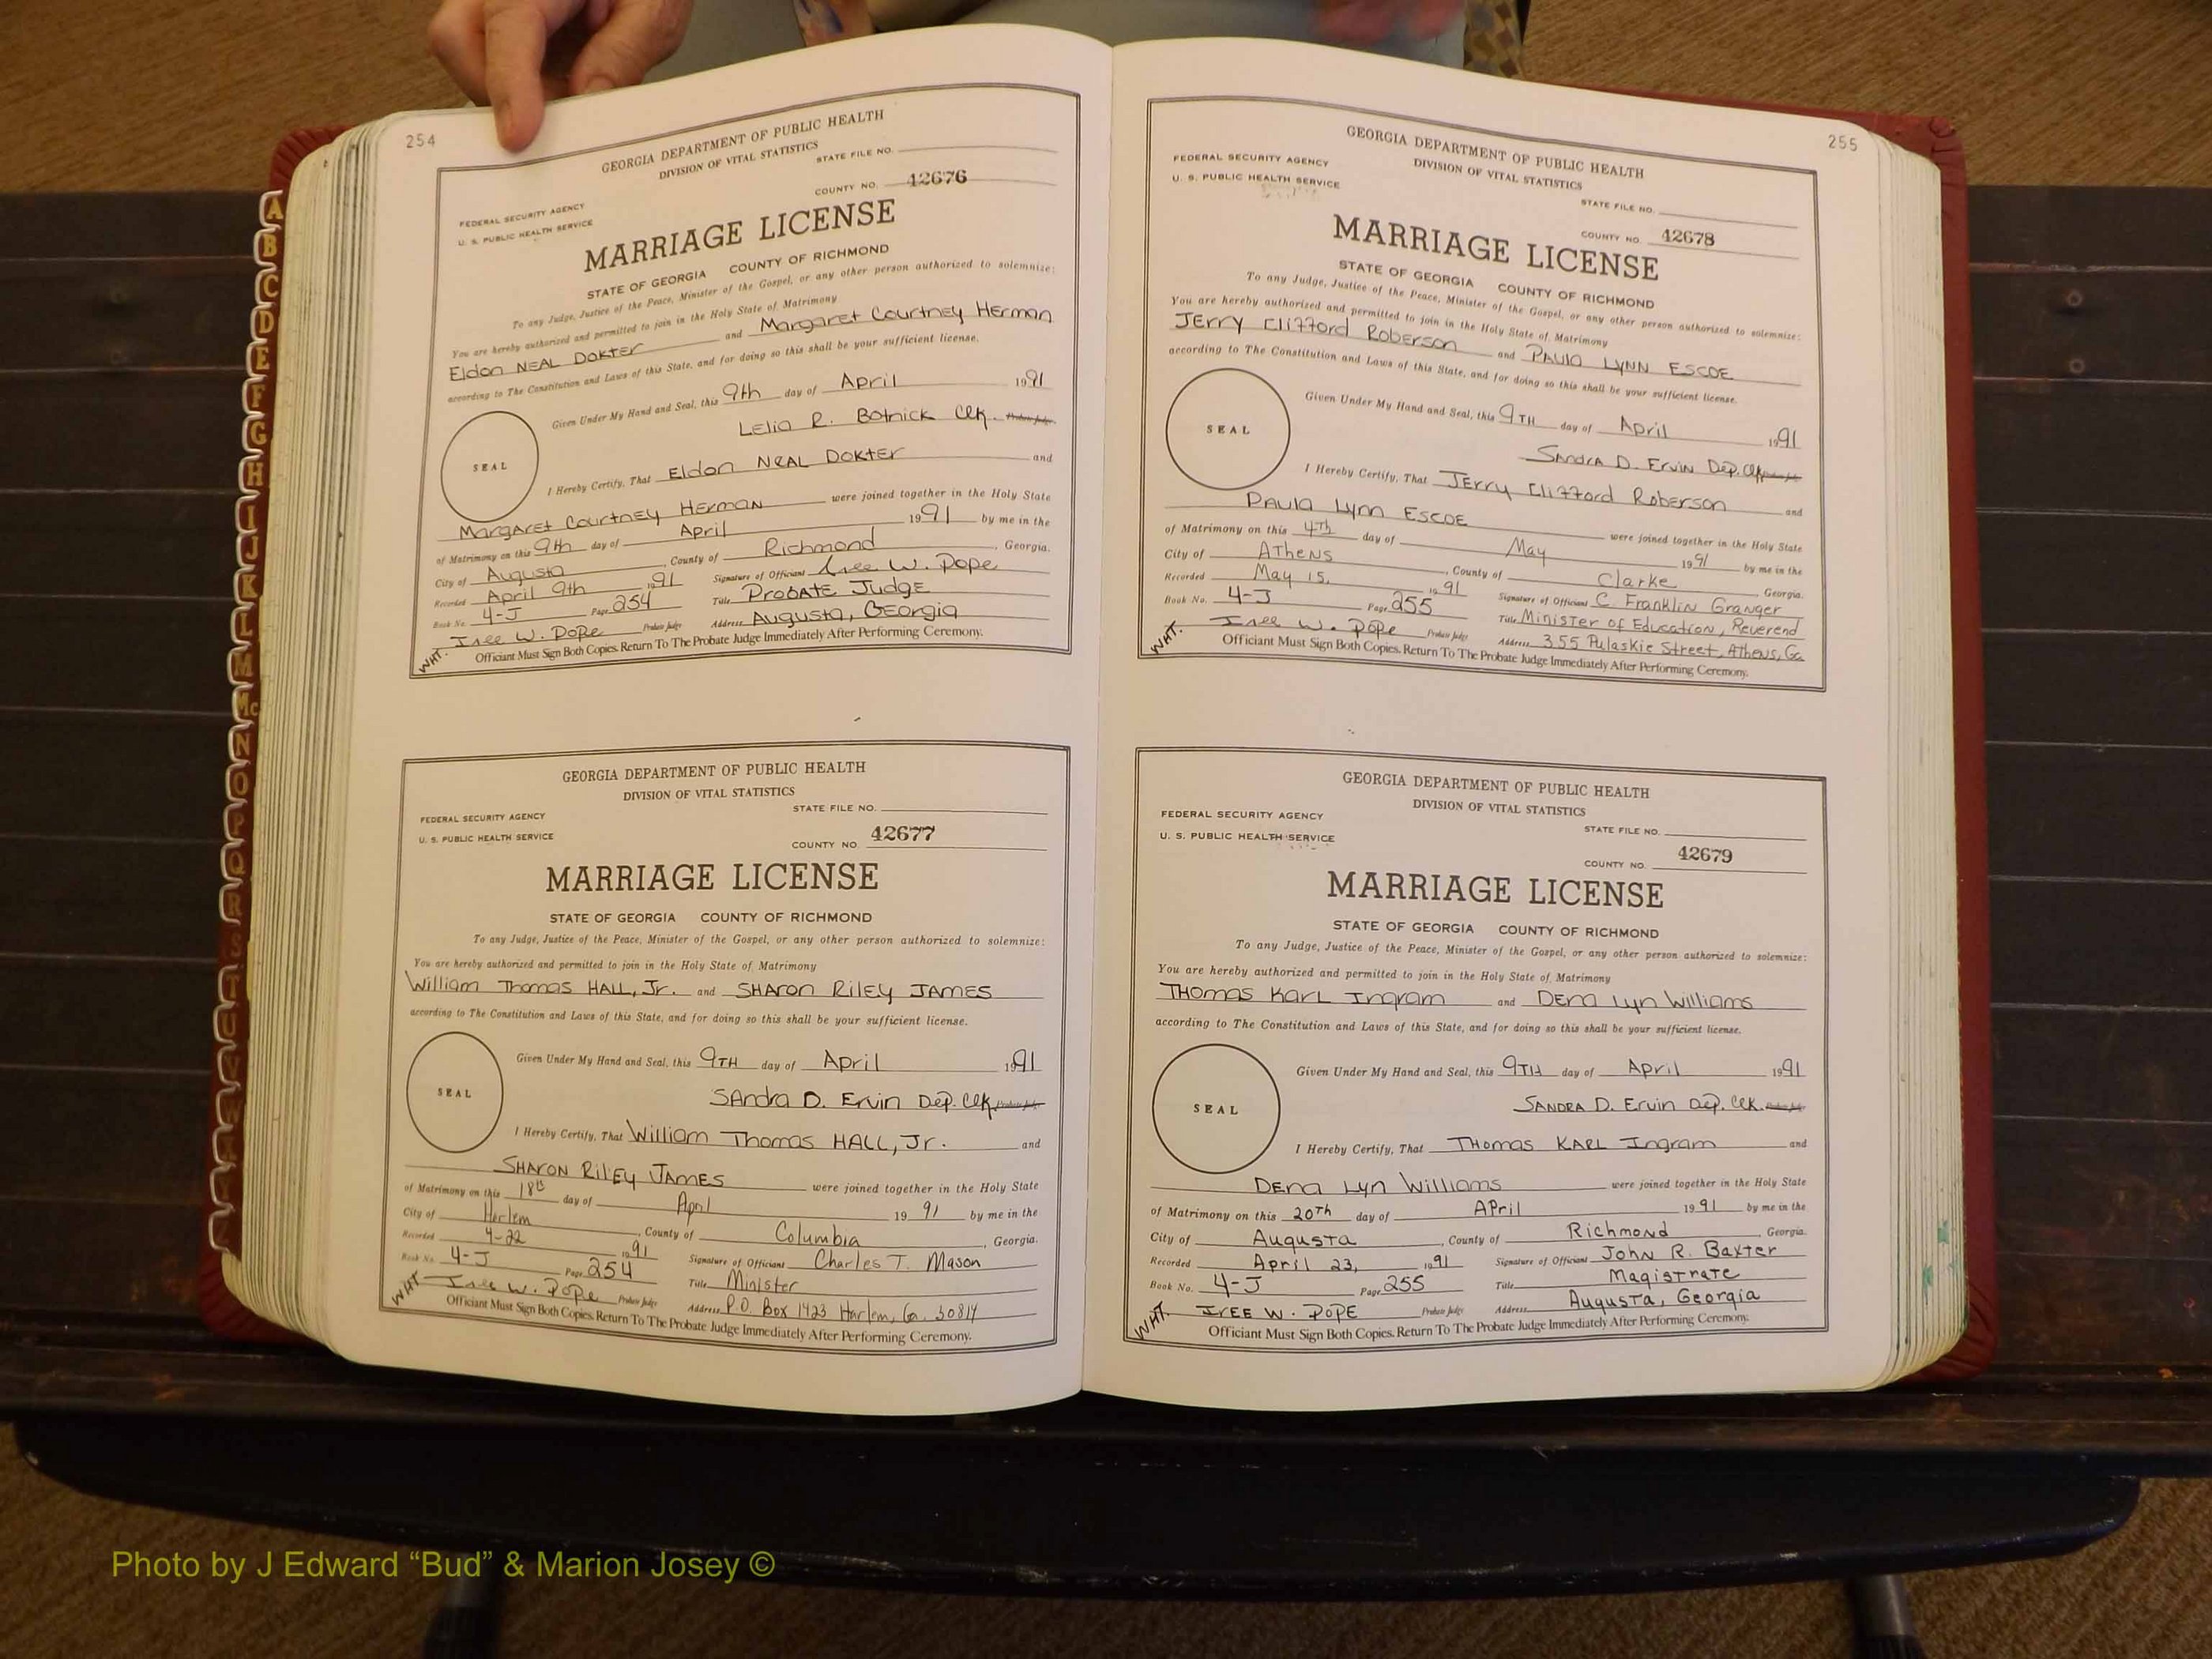 254
GEORGIA DEPARTMENT OF PUBLIC HEALTH
DIVISION OF VITAL STATISTICS
STATE FILE NO.
COUNTY NO. 42676
FEDERAL SECURITY AGENCY
U. S. PUBLIC HEALTH SERVICE
MARRIAGE LICENSE
STATE OF GEORGIA COUNTY OF RICHMOND
To any Judge, Justice of the Peace, Minister of the Gospel, or any other person authorized to solemnize:
You are hereby authorized and permitted to join in the Holy State of Matrimony
Eldon NEAL DOKTER and Margaret Courtney Herman
according to The Constitution and Laws of this State, and for doing so this shall be your sufficient license.
Given Under My Hand and Seal, this 9th day of April 1991
Lelia R. Botnick Clk. Probate Judge
SEAL
I Hereby Certify, That Eldon NEAL DOKTER and
Margaret Courtney Herman were joined together in the Holy State
of Matrimony on this 9th day of April 1991 by me in the
City of Augusta, County of Richmond, Georgia.
Recorded April 9th 1991 Signature of Officiant Isee W. Pope
Book No. 4-J Page 254 Title Probate Judge
Isee W. Pope Probate Judge Address Augusta, Georgia
WHT. Officiant Must Sign Both Copies. Return To The Probate Judge Immediately After Performing Ceremony.
GEORGIA DEPARTMENT OF PUBLIC HEALTH
DIVISION OF VITAL STATISTICS
STATE FILE NO.
FEDERAL SECURITY AGENCY
U. S. PUBLIC HEALTH SERVICE
COUNTY NO. 42677
MARRIAGE LICENSE
STATE OF GEORGIA COUNTY OF RICHMOND
To any Judge, Justice of the Peace, Minister of the Gospel, or any other person authorized to solemnize:
You are hereby authorized and permitted to join in the Holy State of Matrimony
William Thomas HALL, Jr. and SHARON RILEY JAMES
according to The Constitution and Laws of this State, and for doing so this shall be your sufficient license.
Given Under My Hand and Seal, this 9TH day of April 1991
SAndra D. Ervin Dep. Clk. Probate Judge
SEAL
I Hereby Certify, That William Thomas HALL, Jr. and
SHARON RILEY JAMES were joined together in the Holy State
of Matrimony on this 18th day of April 1991 by me in the
City of Harlem, County of Columbia, Georgia.
Recorded 4-22 1991 Signature of Officiant Charles T. Mason
Book No. 4-J Page 254 Title Minister
Isee W. Pope Probate Judge Address P.O. Box 1423 Harlem, Ga. 30814
WHT Officiant Must Sign Both Copies. Return To The Probate Judge Immediately After Performing Ceremony.
255
GEORGIA DEPARTMENT OF PUBLIC HEALTH
DIVISION OF VITAL STATISTICS
FEDERAL SECURITY AGENCY
U. S. PUBLIC HEALTH SERVICE
STATE FILE NO.
COUNTY NO. 42678
MARRIAGE LICENSE
STATE OF GEORGIA COUNTY OF RICHMOND
To any Judge, Justice of the Peace, Minister of the Gospel, or any other person authorized to solemnize:
You are hereby authorized and permitted to join in the Holy State of Matrimony
JERRY Clifford Roberson and PAULA LYNN ESCOE
according to The Constitution and Laws of this State, and for doing so this shall be your sufficient license.
Given Under My Hand and Seal, this 9TH day of April 1991
SAndra D. Ervin Dep. Clk. Probate Judge
SEAL
I Hereby Certify, That JErry Clifford Roberson and
PAULA Lynn ESCOE were joined together in the Holy State
of Matrimony on this 4Th day of May 1991 by me in the
City of AThens, County of Clarke Georgia.
Recorded May 15, 1991 Signature of Officiant C. Franklin Granger
Book No. 4-J Page 255 Title Minister of Education, Reverend
Isee W. Pope Probate Judge Address 355 Pulaskie Street, AThens, Ga
WHT. Officiant Must Sign Both Copies. Return To The Probate Judge Immediately After Performing Ceremony.
GEORGIA DEPARTMENT OF PUBLIC HEALTH
DIVISION OF VITAL STATISTICS
FEDERAL SECURITY AGENCY
U. S. PUBLIC HEALTH SERVICE
STATE FILE NO.
COUNTY NO. 42679
MARRIAGE LICENSE
STATE OF GEORGIA COUNTY OF RICHMOND
To any Judge, Justice of the Peace, Minister of the Gospel, or any other person authorized to solemnize:
You are hereby authorized and permitted to join in the Holy State of Matrimony
THOMAS KARL Ingram and DEna Lyn Williams
according to The Constitution and Laws of this State, and for doing so this shall be your sufficient license.
Given Under My Hand and Seal, this 9TH day of April 1991
SANDRA D. Ervin Dep. Clk. Probate Judge
SEAL
I Hereby Certify, That THomas KARL Ingram and
DEna Lyn Williams were joined together in the Holy State
of Matrimony on this 20Th day of April 1991 by me in the
City of Augusta, County of Richmond Georgia.
Recorded April 23, 1991 Signature of Officiant John R. Baxter
Book No. 4-J Page 255 Title Magistrate
ISEE W. POPE Probate Judge Address Augusta, Georgia
WHT. Officiant Must Sign Both Copies. Return To The Probate Judge Immediately After Performing Ceremony.
A
B
C
D
E
F
G
H
I
J
K
L
M
Mc
N
O
P
Q
R
S
T
U
V
W
Photo by J Edward “Bud” & Marion Josey ©